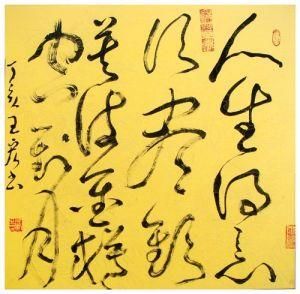 人生得意
須盡歡
莫使金樽
空對月
丁亥王書